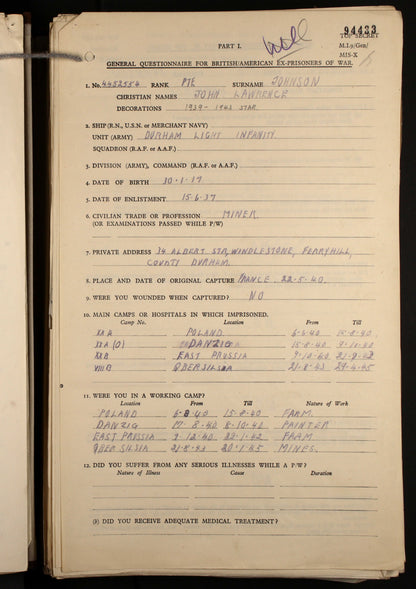 94433
PART I.
TOP SECRET
M.I.9/Gen/
MIS-X
GENERAL QUESTIONNAIRE FOR BRITISH/AMERICAN EX-PRISONERS OF WAR.
1. No. 4452554 RANK PTE SURNAME JOHNSON
CHRISTIAN NAMES JOHN LAWRENCE
DECORATIONS 1939-1943 STAR
2. SHIP (R.N., U.S.N. or MERCHANT NAVY)
UNIT (ARMY) DURHAM LIGHT INFANTY
SQUADRON (R.A.F. or A.A.F.)
3. DIVISION (ARMY), COMMAND (R.A.F. or A.A.F.)
4. DATE OF BIRTH 30-1-17
5. DATE OF ENLISTMENT 15.6.37
6. CIVILIAN TRADE OR PROFESSION MINER
(OR EXAMINATIONS PASSED WHILE P/W)
7. PRIVATE ADDRESS 34 ALBERT STR, WINDLESTONE, FERRYHILL,
COUNTY DURHAM.
8. PLACE AND DATE OF ORIGINAL CAPTURE FRANCE 22-5-40.
9. WERE YOU WOUNDED WHEN CAPTURED? NO
10. MAIN CAMPS OR HOSPITALS IN WHICH IMPRISONED.
Camp No. Location From Till
XXA POLAND 6-6-40 15-8-40
XXA (0) DANZIG 15-8-40 9-10-40
XXB EAST PRUSSIA 9-10-40 21-8-43
VIIIB OBERSILSIA 21-8-43 29-4-45
11. WERE YOU IN A WORKING CAMP?
Location From Till Nature of Work
POLAND 6-8-40 15-8-40 FARM.
DANZIG 17-8-40 8-10-40 PAINTER
EAST PRUSSIA 9-12-40 22-1-42 FARM
OBERSILSIA 21-8-43 20-1-45 MINES.
12. DID YOU SUFFER FROM ANY SERIOUS ILLNESSES WHILE A P/W?
Nature of Illness Cause Duration
(b) DID YOU RECEIVE ADEQUATE MEDICAL TREATMENT?